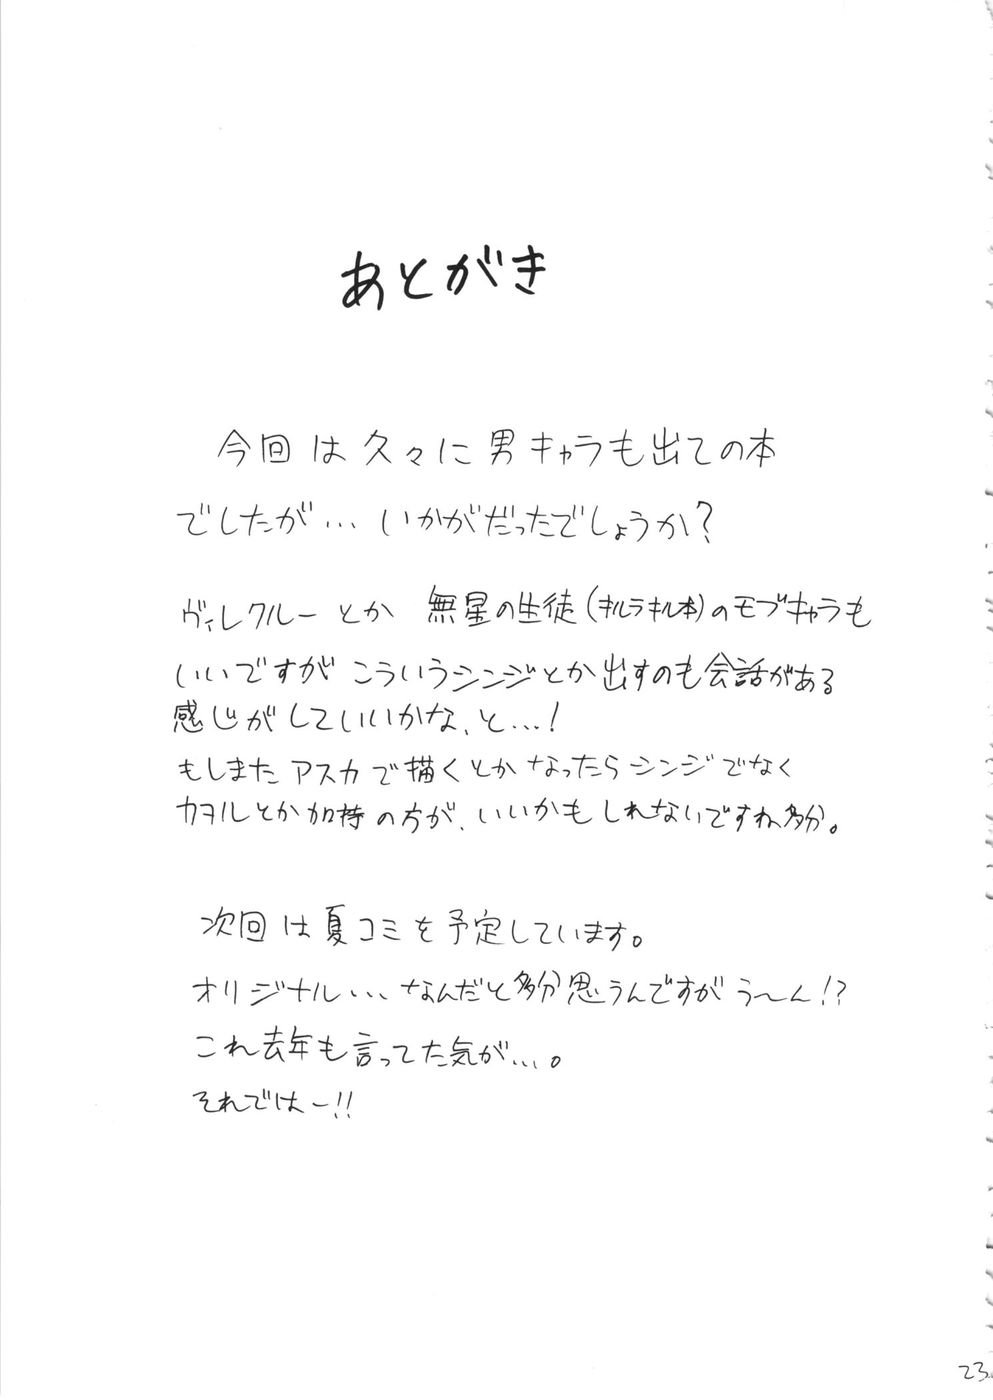 あとがき
今回は久々に男キャラも出ての本
でしたが… いかがだったでしょうか?
ヴィレクルーとか 無星の生徒(キルラキル本)のモブキャラも
いいですが こういうシンジとか出すのも会話がある
感じがしていいかな、と…!
もしまたアスカで描くとかなったらシンジでなく
カヲルとか加持の方が、いいかもしれないですね多分。
次回は夏コミを予定しています。
オリジナル… なんだと多分思うんですが う〜ん!?
これ去年も言ってた気が…。
それではー!!
23